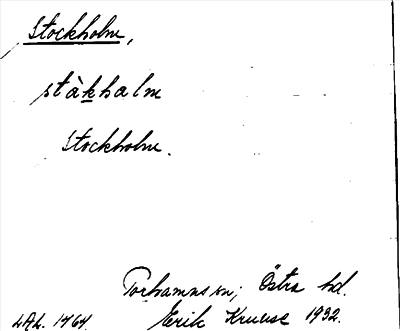 Stockholm,
stàkhalm
Stockholm.
Torhamns sn; Östra hd.
LAL. 1764. Erik Kruuse 1932.